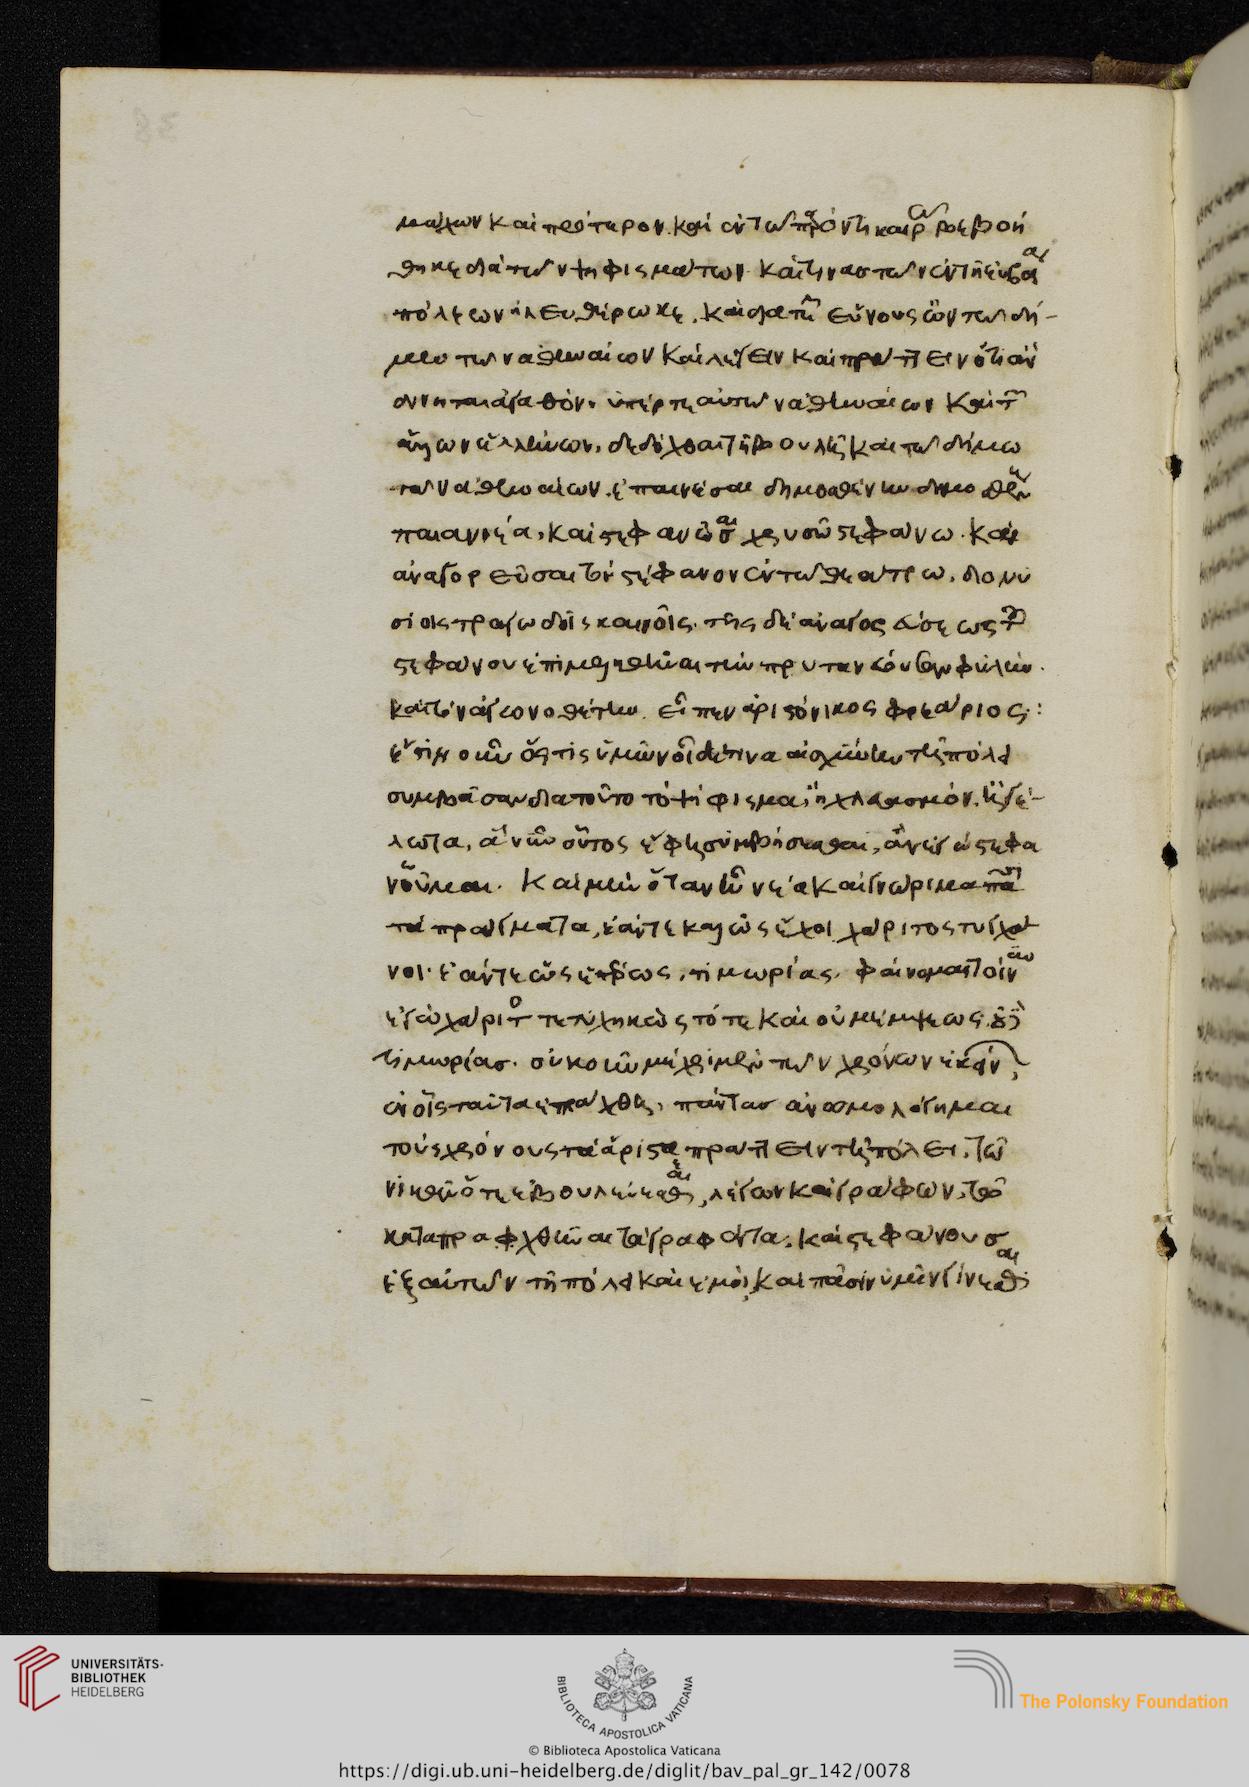 μάχων καὶ πρότερον. καὶ ἐν τῶ παρόντι καιρῶ βεβοή
θηκε διὰ τῶν ψηφισμάτων καί τινας τῶν ἐν τῆ εὐβοία
πόλεων ἠλευθέρωκε. καὶ διατελεῖ εὔνους ὢν τῶ δή-
μω τῶν ἀθηναίων καὶ λέγειν καὶ πράττειν ὅτι ἂν
δύνηται ἀγαθὸν. ὑπέρ τε αὐτῶν ἀθηναίων καὶ τῶν
ἄλλων ἑλλήνων. δεδόχθαι τῆ βουλῆ καὶ τῶ δήμω
τῶν ἀθηναίων. ἐπαινέσαι δημοσθένην δημοσθένους
παιανιέα, καὶ στεφανῶσαι χρυσῶ στεφάνω. καὶ
ἀναγορεῦσαι τὸν στέφανον ἐν τῶ θεάτρω. διονυ
σίοις τραγωδοῖς καινοῖς. τῆς δὲ ἀναγορεύσεως τοῦ
στεφάνου ἐπιμεληθῆναι τὴν πρυτανεύουσαν φυλὴν.
καὶ τὸν ἀγωνοθέτην. εἶπεν ἀριστόνικος φρεάριος:
ἔστιν οὖν ὅστις ὑμῶν οἶδέ τινα αἰσχύνην τῆ πόλει
συμβᾶσαν διὰ τοῦτο τὸ ψήφισμα, ἢ χλευασμὸν, ἢ γέ-
λωτα, ἃ νῦν οὗτος ἔφη συμβήσεσθαι, ἂν ἐγὼ στεφα
νῶμαι. καὶ μὴν ὅταν ἦ νέα καὶ γνώριμα πᾶσι
τὰ πράγματα, ἐάν τε καλῶς ἔχοι χάριτος τυγχά
νει. ἐάν τε ὡς ἑτέρως, τιμωρίας. φαίνομαι τοίνυν
ἐγὼ χάριτος τετυχηκὼς τότε καὶ οὐ μέμψεως οὐδὲ
τιμωρίας. οὐκοῦν μέχρι μὲν τῶν χρόνων ἐκείνων,
ἐν οἷς ταῦτα ἐπράχθη, πάντας ἀνωμολόγημαι
τοὺς χρόνους τὰ ἄριστα πράττειν τῆ πόλει. τῶ
νικᾶν ὅτε ἐβουλεύεσθε, λέγων καὶ γράφων. τῶ
καταπραχθῆναι τὰ γραφέντα. καὶ στεφάνους
ἐξ αὐτῶν τῆ πόλει καὶ ἐμοὶ καὶ πᾶσιν ὑμῖν γίνεσθαι
UNIVERSITÄTS-
BIBLIOTHEK
HEIDELBERG
BIBLIOTECA APOSTOLICA VATICANA
© Biblioteca Apostolica Vaticana
The Polonsky Foundation
https://digi.ub.uni-heidelberg.de/diglit/bav_pal_gr_142/0078